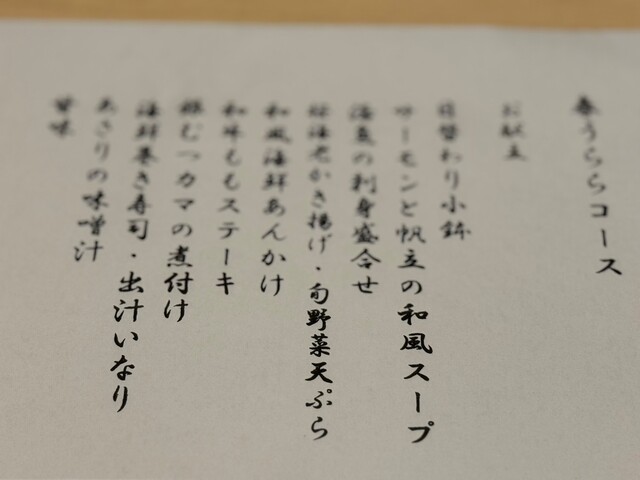 春うららコース
お献立
日替わり小鉢
サーモンと帆立の和風スープ
海鬼の刺身盛合せ
桜海老かき揚げ・旬野菜天ぷら
和風海鮮あんかけ
和牛ももステーキ
銀むつカマの煮付け
海鮮巻き寿司・出汁いなり
あさりの味噌汁
甘味